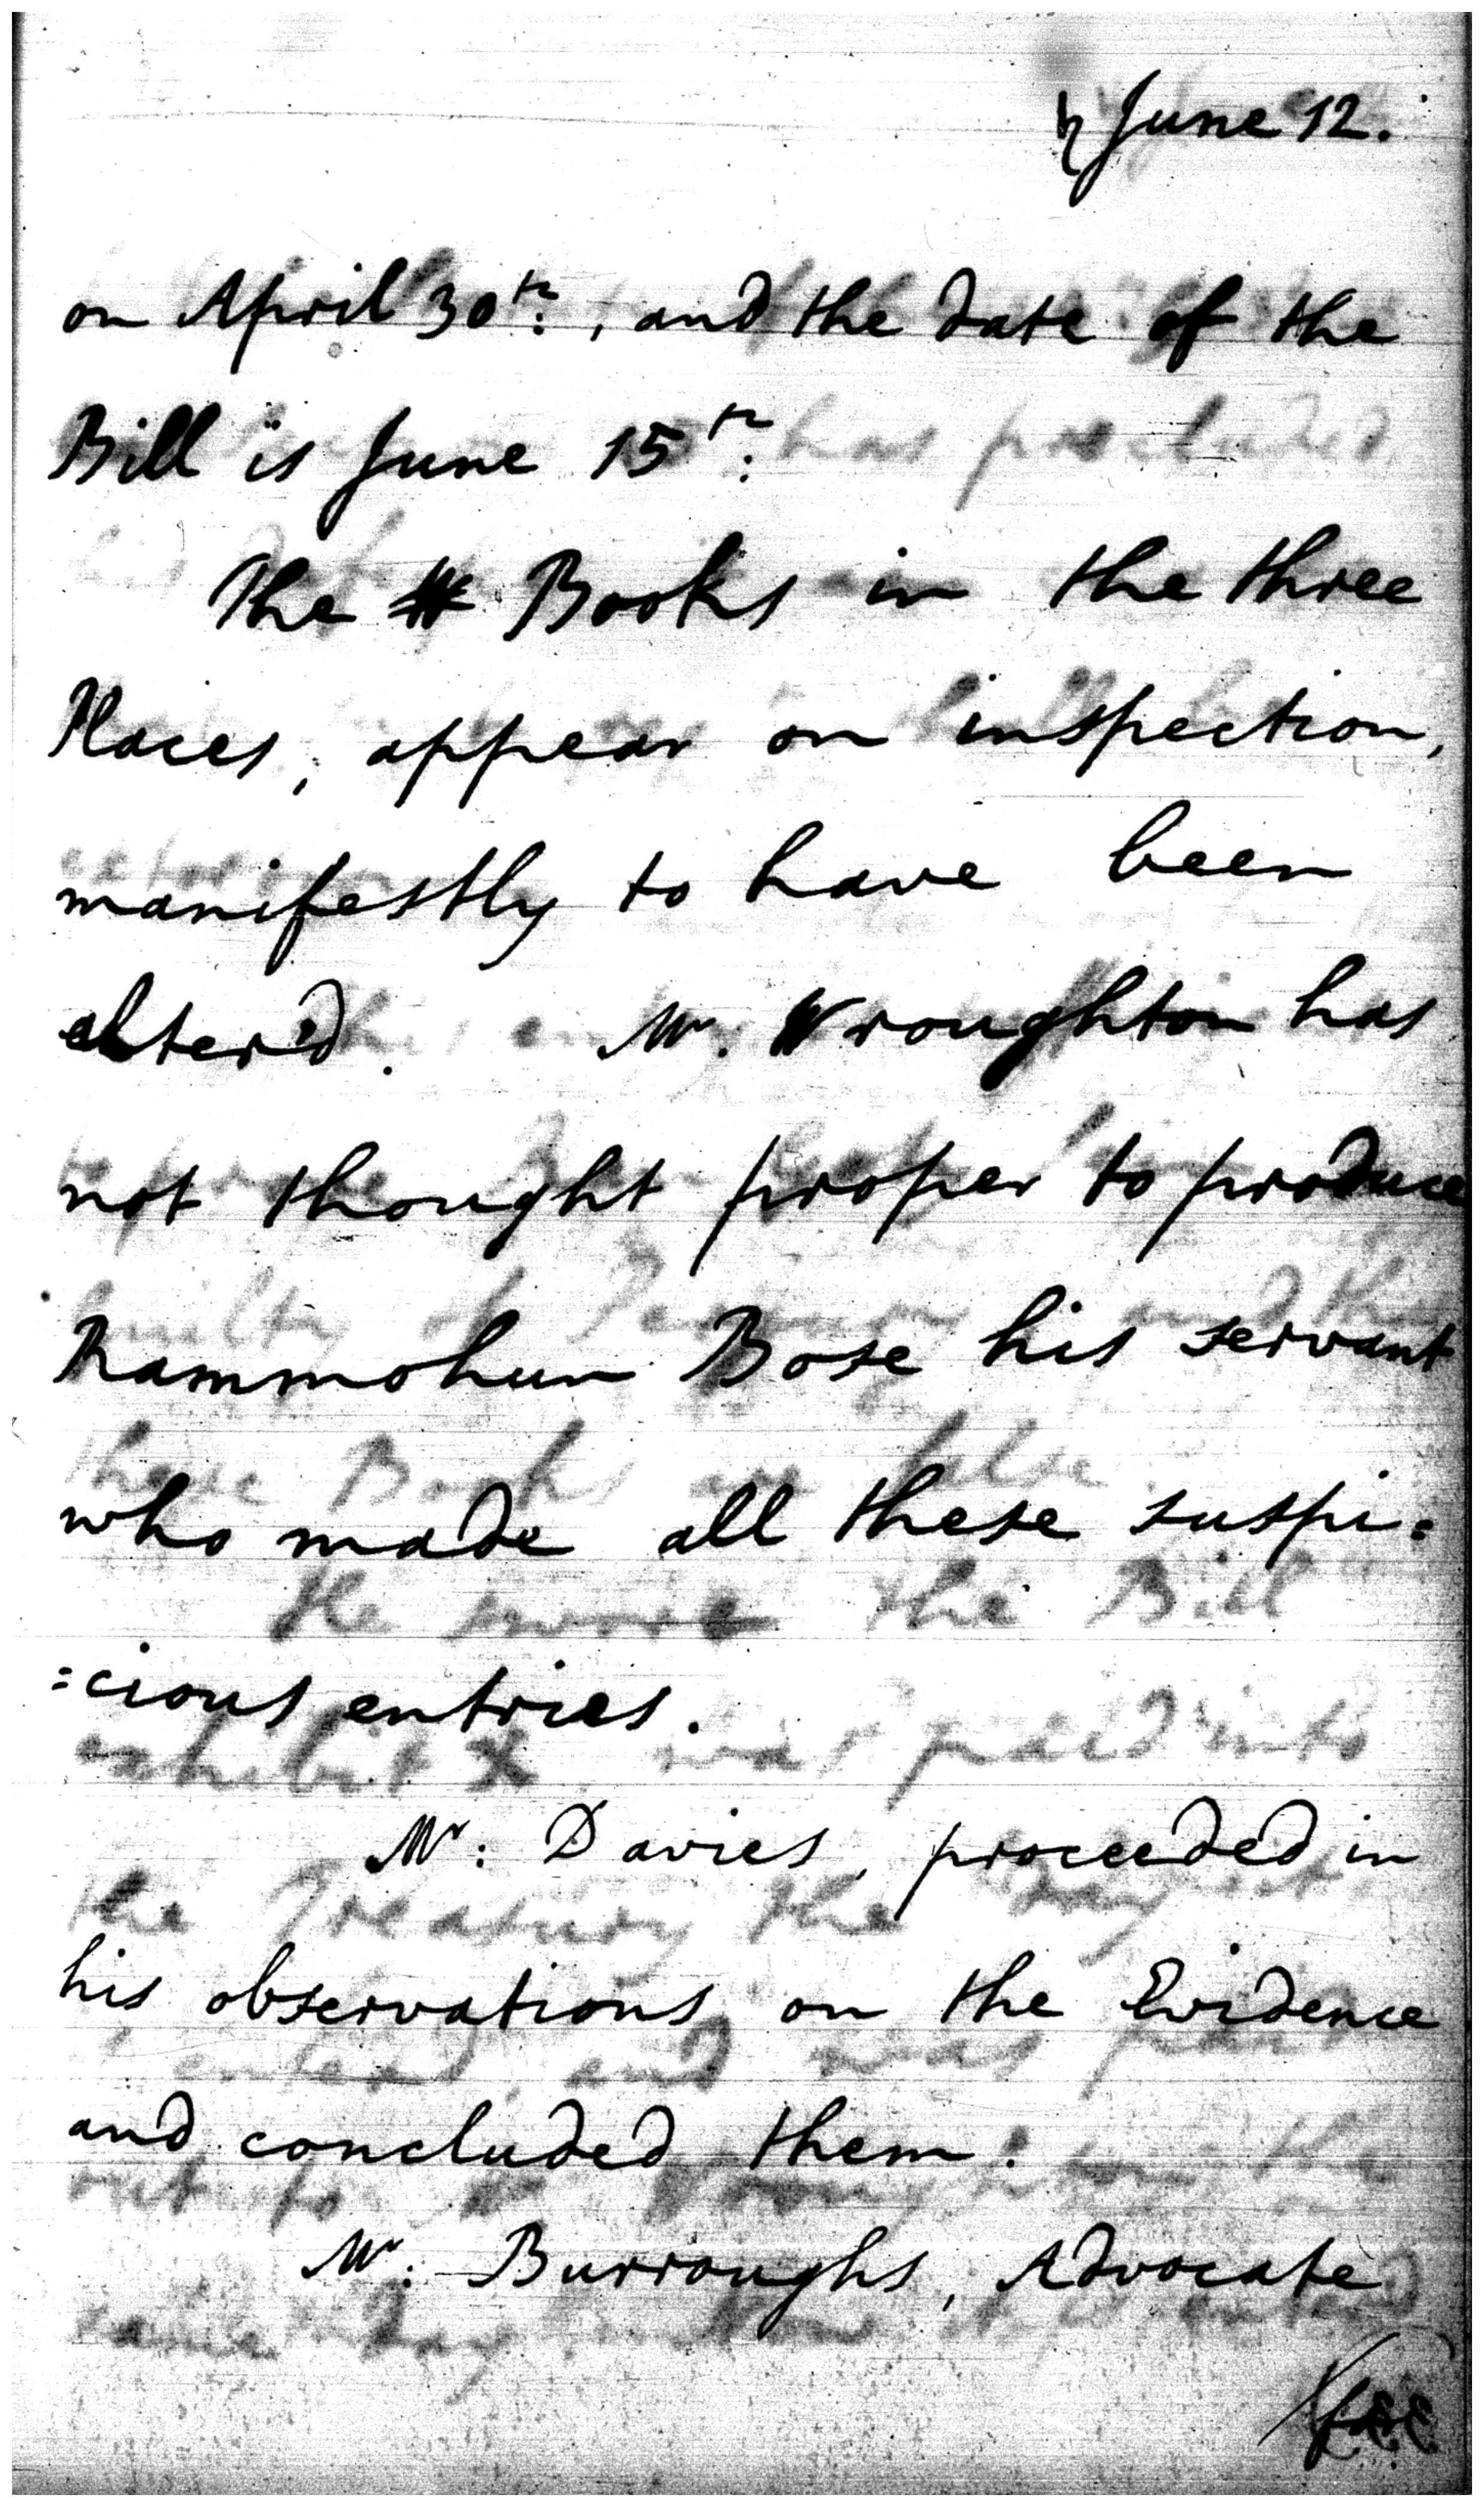 ♄ June 12.
on April 30th:, and the date of the
Bill is June 15th:
The Books in the three
Places, appear on inspection,
manifestly to have been
alter'd. Mr. Wroughton has
not thought proper to produce
Rammohun Bose his servant
who made all these suspi=
=cious entries.
Mr: Davies, proceeded in
his observations on the Evidence
and concluded them.
Mr: Burroughs, Advocate